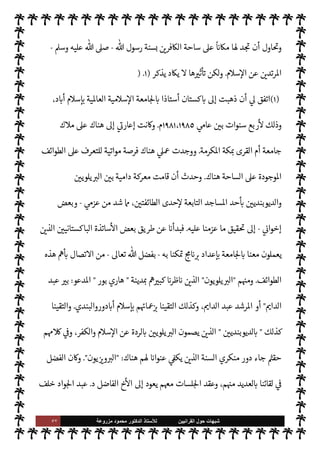 وتحاول أن تجد لها مكاناً على ساحة الكافرين بسنة رسول الله - صلى الله عليه وسلم -
المرتدين عن الإسلام. ولكن تأثيرها لا يكاد يذكر (١. (
(١)اتفق لي أن ذهبت إلى باكستان أستاذا بالجامعة الإسلامية العالمية بإسلام أباد،
وذلك لأربع سنوات بين عامي ١٩٨١،١٩٨٥م. وكانت إعارتي إلى هناك على ملاك
جامعة أم القرى بمكة المكرمة. ووجدت عملي هناك فرصة مواتية للتعرف على الطوائف
الموجودة على الساحة هناك. وحدث أن قامت معركة دامية بين البريلويين
والديوبنديين بأحد المساجد التابعة لإحدى الطائفتين، مما شد من عزمي - وبعض
إخواني - إلى تحقيق ما عزمنا عليه. فبدأنا عن طريق بعض الأساتذة الباكستانيين الذين
يعملون معنا بالجامعة بإعداد برنامج تمكنا به - بفضل الله تعالى - من الاتصال بأهم هذه
الطوائف. ومنهم "البريلويون" الذين ناظرنا كبيرهم بمدينة " هاري بور " المدعو: بير عبد
الدايم" أو المرشد عبد الدايم، وكذلك التقينا بزعمائهم بإسلام أبادوروالبندي. والتقينا
كذلك " بالديوبنديين " الذين يصمون البريلويين بالردة عن الإسلام والكفر. وفي كلامهم
حقثم جاء دور منكري السنة الذين يكفي عنوانا لهم هناك: "البرويزيون". وكان الفضل
في لقائنا بالعديد منهم، وعقد الجلسات معهم يعود إلى الأخ الفاضل د. عبد الجواد خلف
شبهات حول القرآنيين للأستاذ الدكتور محمود مزروعة ٥٣